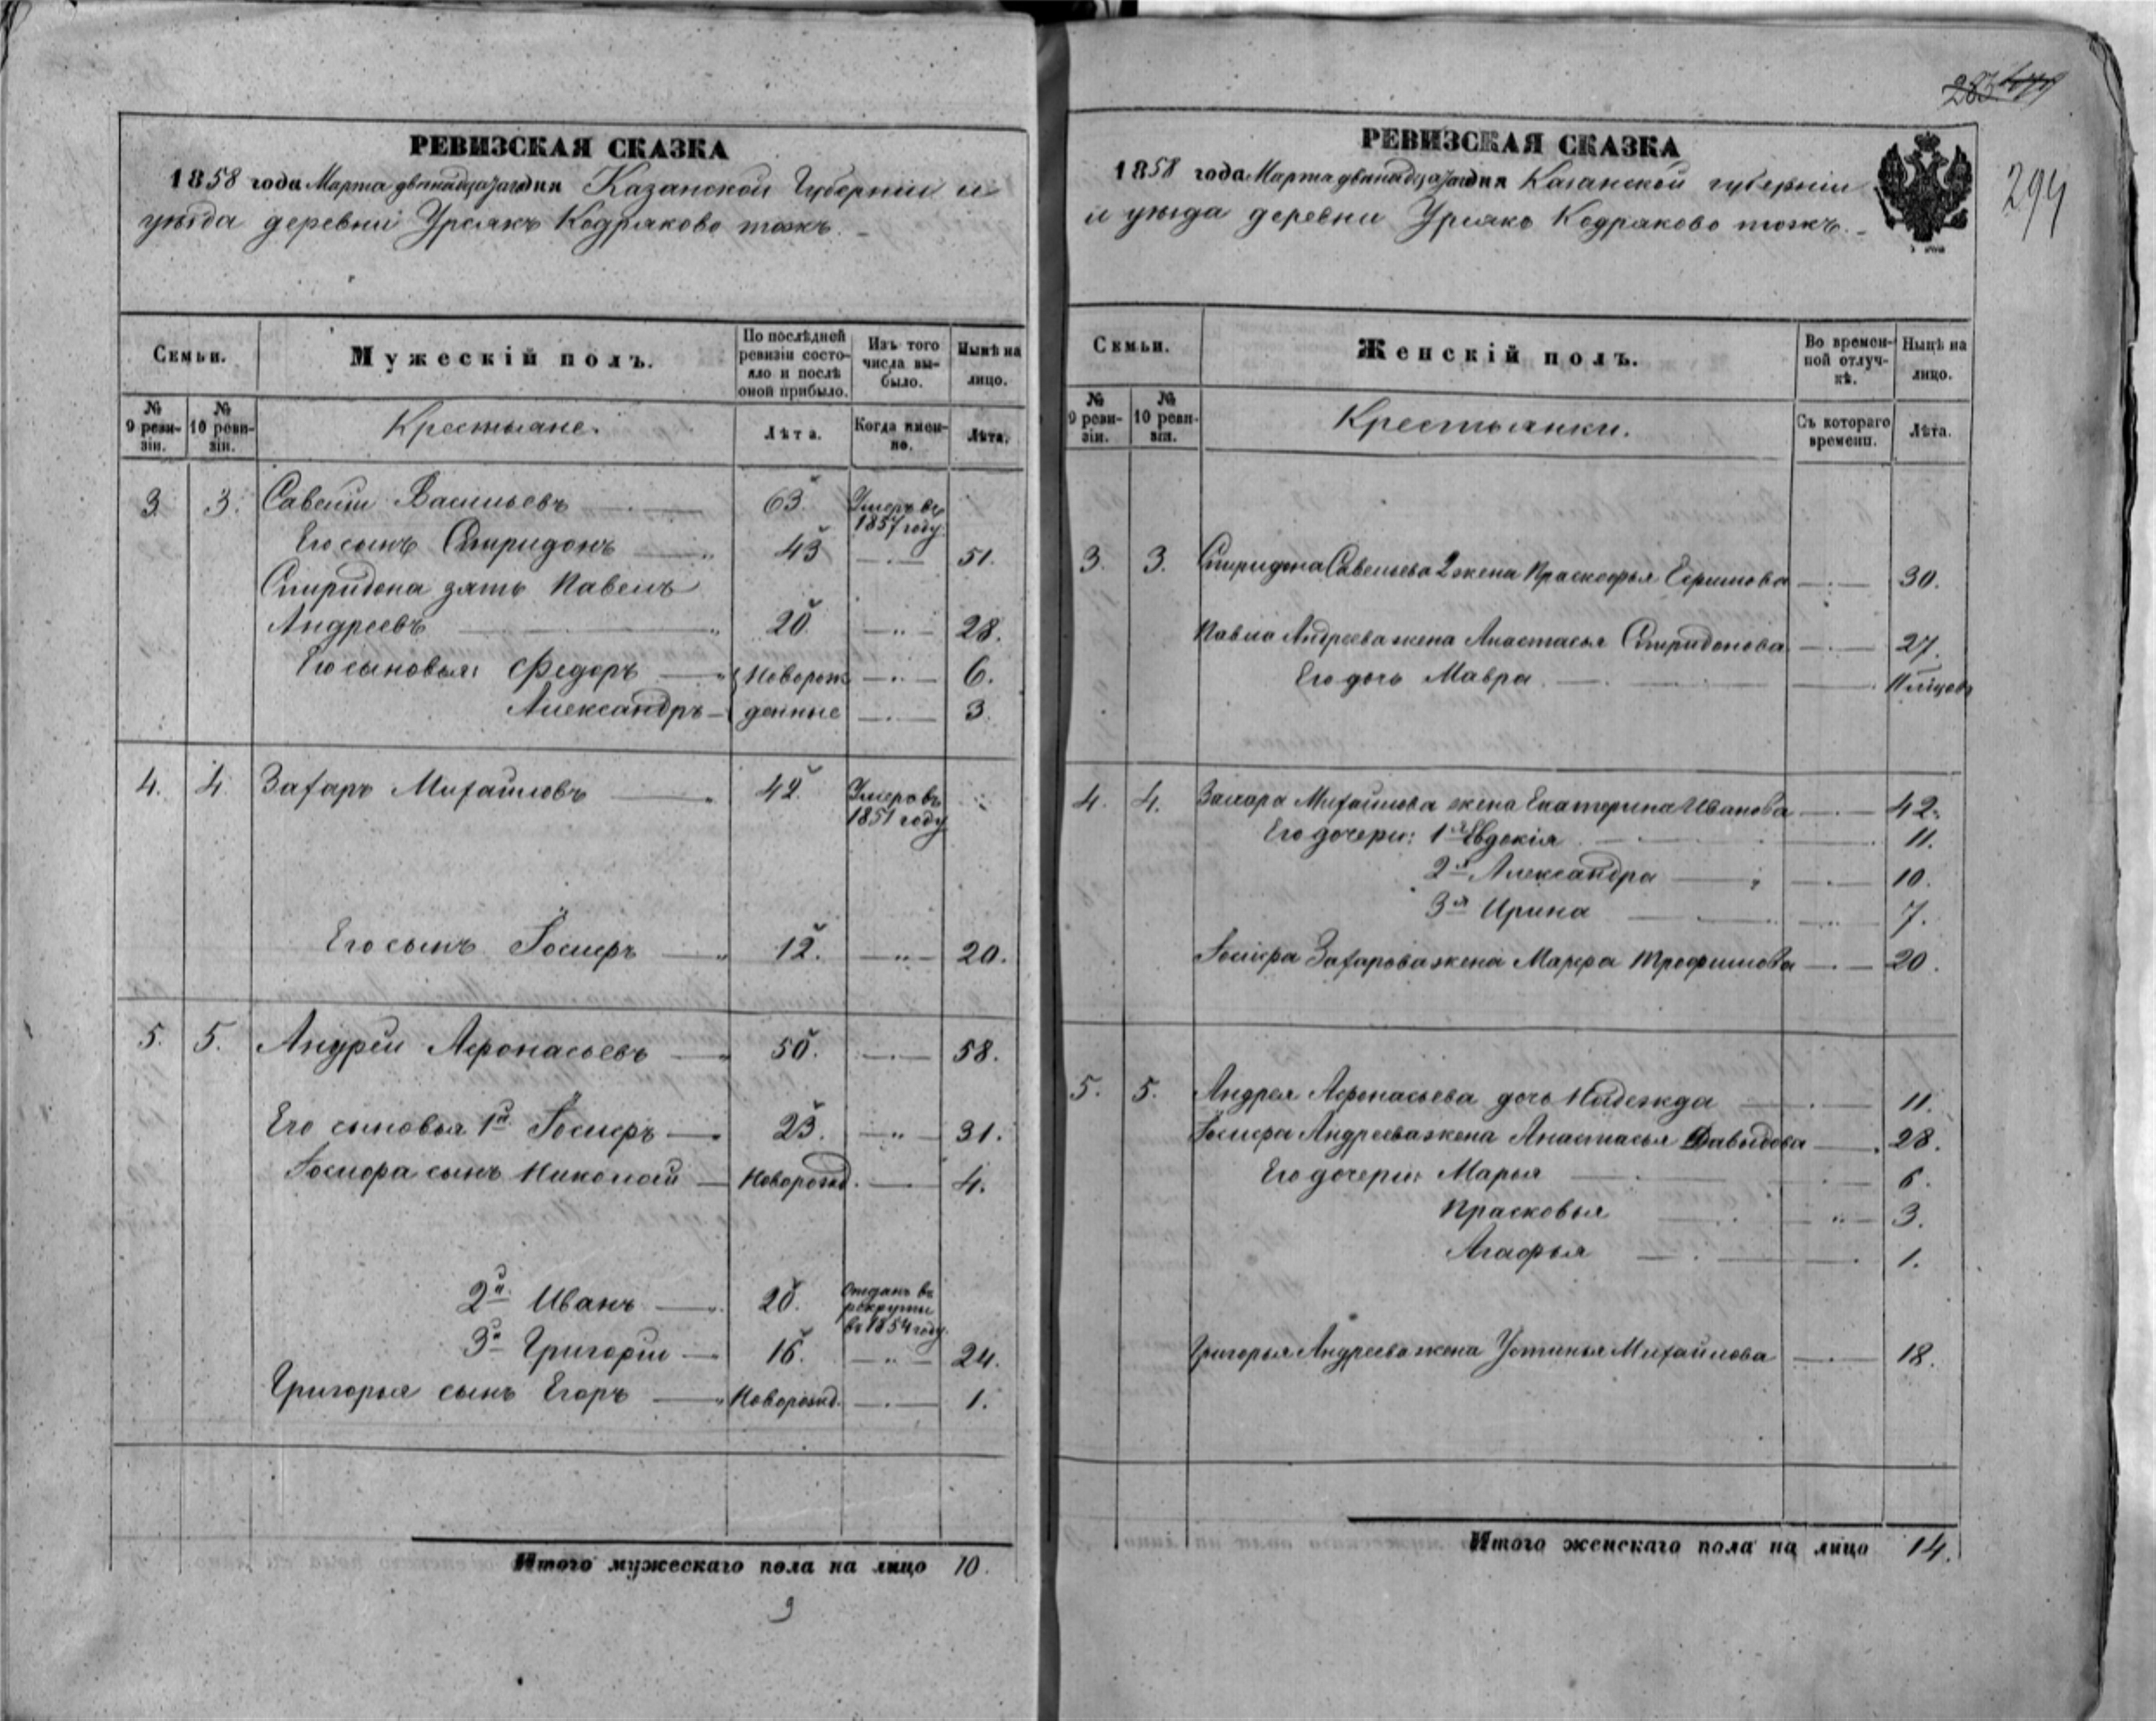 РЕВИЗСКАЯ СКАЗКА
1858 года Марта двѣнадцатаго дня Казанской Губерніи и
уѣзда деревни Урсякъ Кодряково тожъ.
Семьи.
Мужескій полъ.
По послѣдней ревизіи состояло и послѣ оной прибыло.
Изъ того числа выбыло.
Нынѣ на лицо.
№ 9 ревизіи.
№ 10 ревизіи.
Крестьяне.
Лѣта.
Когда именно.
Лѣта.
3. 3. Савелій Васильевъ 63. Умеръ въ 1857 году.
Его сынъ Спиридонъ 43 51.
Спиридона зять Павелъ
Андреевъ 20 28.
Его сыновья: Федоръ Новорож 6.
Александръ денные 3.
4. 4. Захаръ Михайловъ 42. Умеръ въ 1851 году
Его сынъ Іосифъ 12. 20.
5. 5. Андрей Афонасьевъ 50. 58.
Его сыновья 1й Іосифъ 23. 31.
Іосифа сынъ Николай Новорожд. 4.
2й Иванъ 20. Отданъ въ рекруты въ 1854 году.
3й Григорій 16. 24.
Григорья сынъ Егоръ Новорожд. 1.
Итого мужескаго пола на лицо 10.
9
294
РЕВИЗСКАЯ СКАЗКА
1858 года Марта двѣнадцатаго дня Казанской губерніи
и уѣзда деревни Урсякъ Кодряково тожъ.
Семьи.
Женскій полъ.
Во временной отлучкѣ.
Нынѣ на лицо.
№ 9 ревизіи.
№ 10 ревизіи.
Крестьянки.
Съ котораго времени.
Лѣта.
3. 3. Спиридона Савельева 2 жена Прасковья Ефимова 30.
Павла Андреева жена Анастасья Спиридонова 27.
Его дочь Мавра
4. 4. Захара Михайлова жена Екатерина Иванова 42.
Его дочери: 1я Евдокія 11.
2я Александра 10.
3я Ирина 7.
Іосифа Захарова жена Марфа Трофимова 20.
5. 5. Андрея Афонасьева дочь Надежда 11.
Іосифа Андреева жена Анастасья Давыдова 28.
Его дочери: Марья 6.
Прасковья 3.
Агафья 1.
Григорья Андреева жена Устинья Михайлова 18.
Итого женскаго пола на лицо 14.